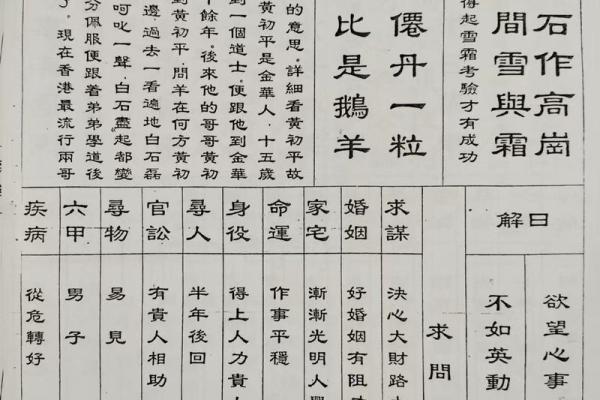 石作高崗
間雪與霜
得起雪霜考驗才有成功
僊丹一粒
比是鵝羊
的意思。詳細看黃初平故
黃初平是金華人，十五歲
到一個道士，便跟他到金華
十餘年。後來他的哥哥黃初
到黃初平，問羊在何方黃初
邊，過去一看遍地白石磊
呵叱一聲，白石盡起都變
分佩服便跟着弟弟學道後
了。現在香港最流行兩哥
解曰
欲望心事
不如英動
求問
求謀
決心大財路
婚姻
好婚姻有阻
家宅
漸漸光明人
命運
作事平穩
身役
得上人力貴
尋人
半年後回
官訟
有貴人相助
尋物
易見
六甲
男子
疾病
從危轉好